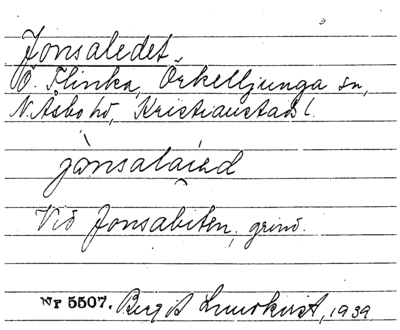 Jonsaledet
Ö. Flinka, Örkelljunga sn,
N. Åsbo hd, Kristianstads l.
jònsalaiəd
Vid Jonsabiten, grind.
Nr 5507. Birgit Lundkvist, 1939